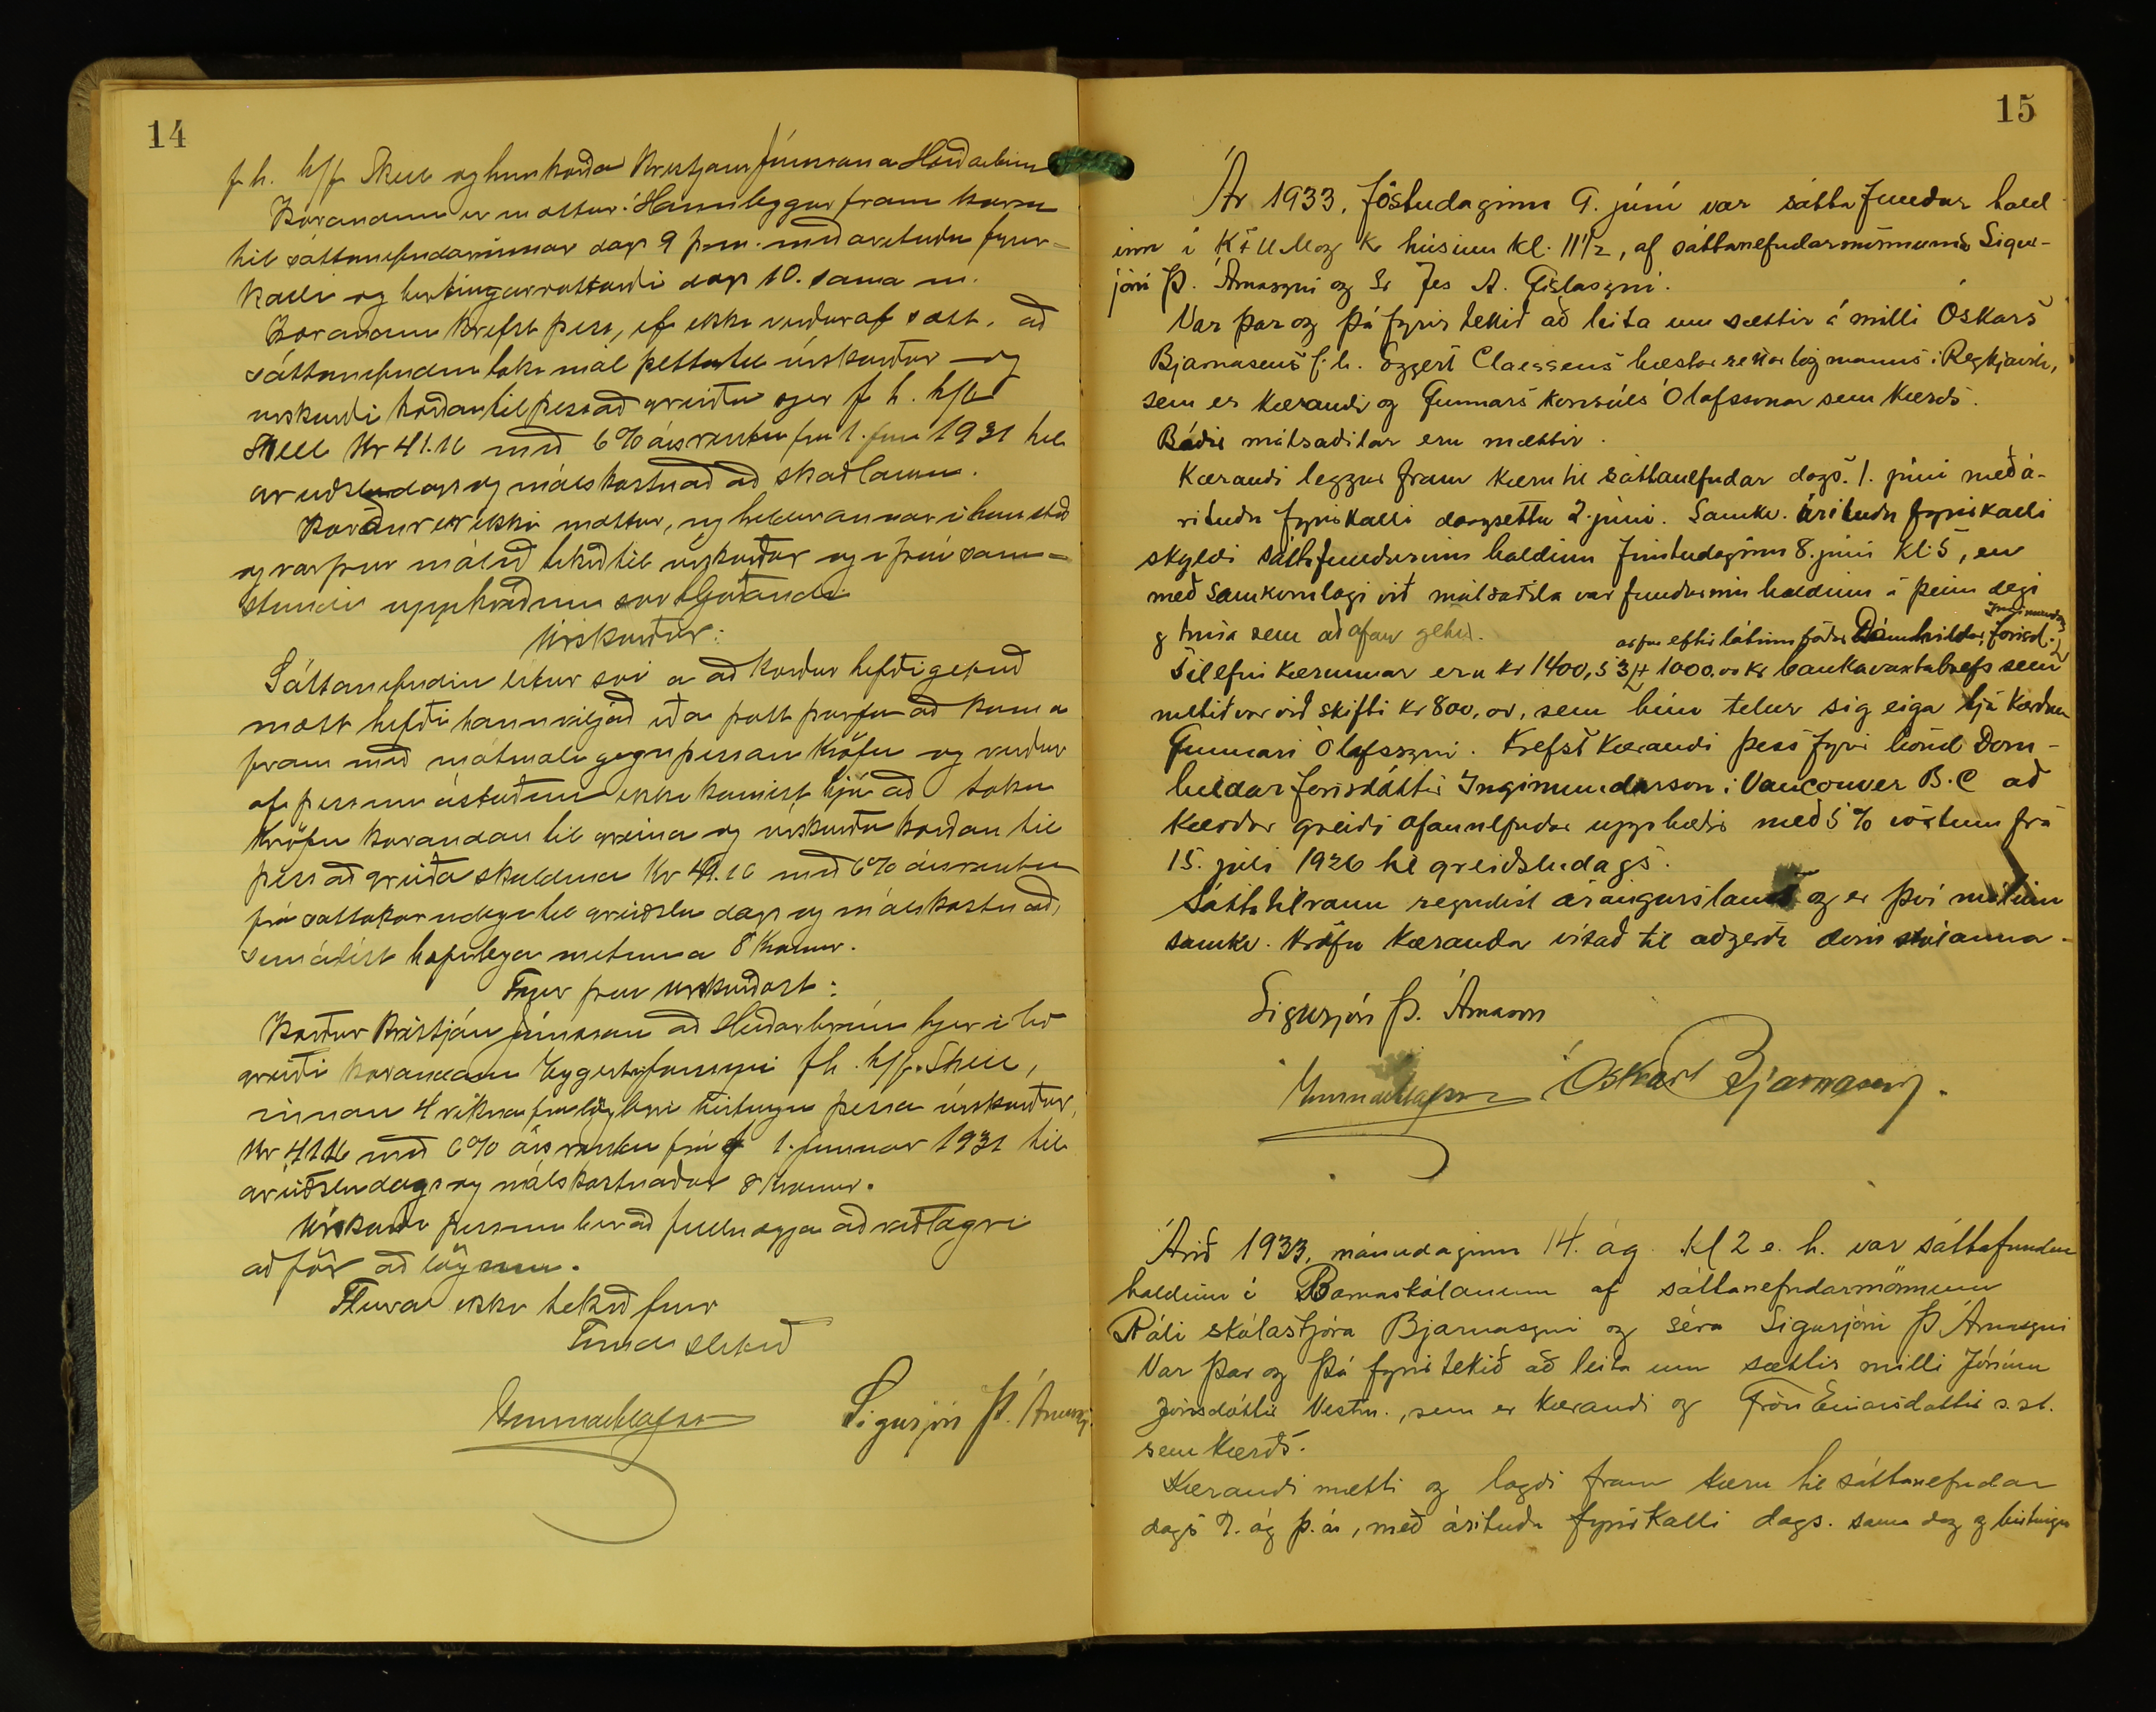 14
f.h. h/f Skell og hins kærða Kristjáns Jónssonar Heiðarbrún
Kærandinn er mættur. Hann leggur fram kæru
til sáttanefndarinnar dags 9 þ.m. með árituðu fyrir-
kalli og birtingarvottorði dags 10. sama m.
Kærandinn krefst þess, ef ekki verður af sætt, að
sáttanefndin taki mál þetta til úrskurðar og
úrskurði kærðan til þess að greiða f h. h/f
Skell Kr 41.16 með 6% ársvöxtum frá 1. jan 1931 til
greiðsludags og málskostnað að skaðlausu.
Kærður er ekki mættur, og heldur annar í hans stað
og var þvi málið tekið til úrskurðar og í því sam-
stundis uppkveðinn svohljóðandi
Úrskurður:
Sáttanefndin lítur svo á að kærður hefði getað
mætt hefði hann viljað eða þótt þurfa að koma
fram með mótmæli gegn þessari kröfu og verður
af þessum ástæðum ekki komist hjá að taka
kröfu kærandans til greina og úrskurða kærðan til
þess að greiða skuldina Kr 41.16 með 6% ársvöxtum
frá sáttakærudegi til greiðslu dags og málskostnað,
sem álíst hæfilega metinn á 8 krónur.
Því úrskurðast:
Kærður Kristján Jónsson að Heiðarbrún hjer í bæ
greiði kærandanum f.h. h/f. Skell,
innan 4 vikna frá löglegri birtingu þessa úrskurðar,
Kr 41.16 með 6% ársvöxtum frá 1. janúar 1931 til
greiðsludags og málskostnaðar 8 krónur.
Úrskurði þessum ber að fullnægja að viðlagðri
aðför að lögum.
Fleira ekki tekið fyrir
Fundi slitið
Gunnar Ólafsson Sigurjón Þ. Árnason
15
Ár 1933, föstudaginn 9. júní var sáttafundur hald
inn í K.F.U.M og K húsinu kl. 11 1/2, af sáttanefndarmönnunum Sigur-
jóni Þ. Árnasyni og Sr Jes A. Gíslasyni.
Var þar og þá fyrir tekið að leita um sættir á milli Óskars
Bjarnasens f.h. Eggert Claessens hæstarjettarlögmanns í Reykjavík,
sem er kærandi og Gunnars konsúls Ólafssonar sem kærðs.
Báðir málsaðilar eru mættir.
Kærandi leggur fram kæru til sáttanefndar dags. 1. júní með á-
rituðu fyrirkalli dagsettu 2. júní. Samkv. árituðu fyrirkalli
skyldi sáttafundurinn haldinn fimtudaginn 8. júní kl. 5, en
með samkomulagi við málsaðila var fundurinn haldinn á þeim degi
og tíma sem að ofan getur.
arfur eftir látinn föður Dómhildar Jónsd. Ingimundarson
Tilefni kærunnar eru kr 1400,53 + 1000.00 kr bankavaxtabrefs sem
metið var við skifti kr 800,00, sem hún telur sig eiga hjá kærðum
Gunnari Ólafssyni. Krefst kærandi þess fyrir hönd Dóm-
hildar Jónsdóttir Ingimundarson í Vancouver B.C að
kærður greiði ofannefndar upphæðir með 5% vöxtum frá
15. júlí 1926 til greiðsludags.
Sáttatilraun reyndist árangurslaus og er því málinu
samkv. kröfu kæranda vísað til aðgerða dómstólanna.
Sigurjón Þ. Árnason
Gunnar Ólafsson Óskar Bjarnasen.
Árið 1933, mánudaginn 14. ág. kl 2 e. h. var sáttafundur
haldinn í Barnaskólanum af sáttanefndarmönnum
Páli skólastjóra Bjarnasyni og séra Sigurjóni Þ Árnasyni
Var þar og þá fyrir tekið að leita um sættir milli Jónínu
Jónsdóttir Vestm., sem er kærandi og Einarsdóttir s.st.
sem kærðs.
Kærandi mætti og lagði fram kæru til sáttanefndar
dags 9. ág þ.ár, með árituðu fyrirkalli dags. sama dag og birtingu